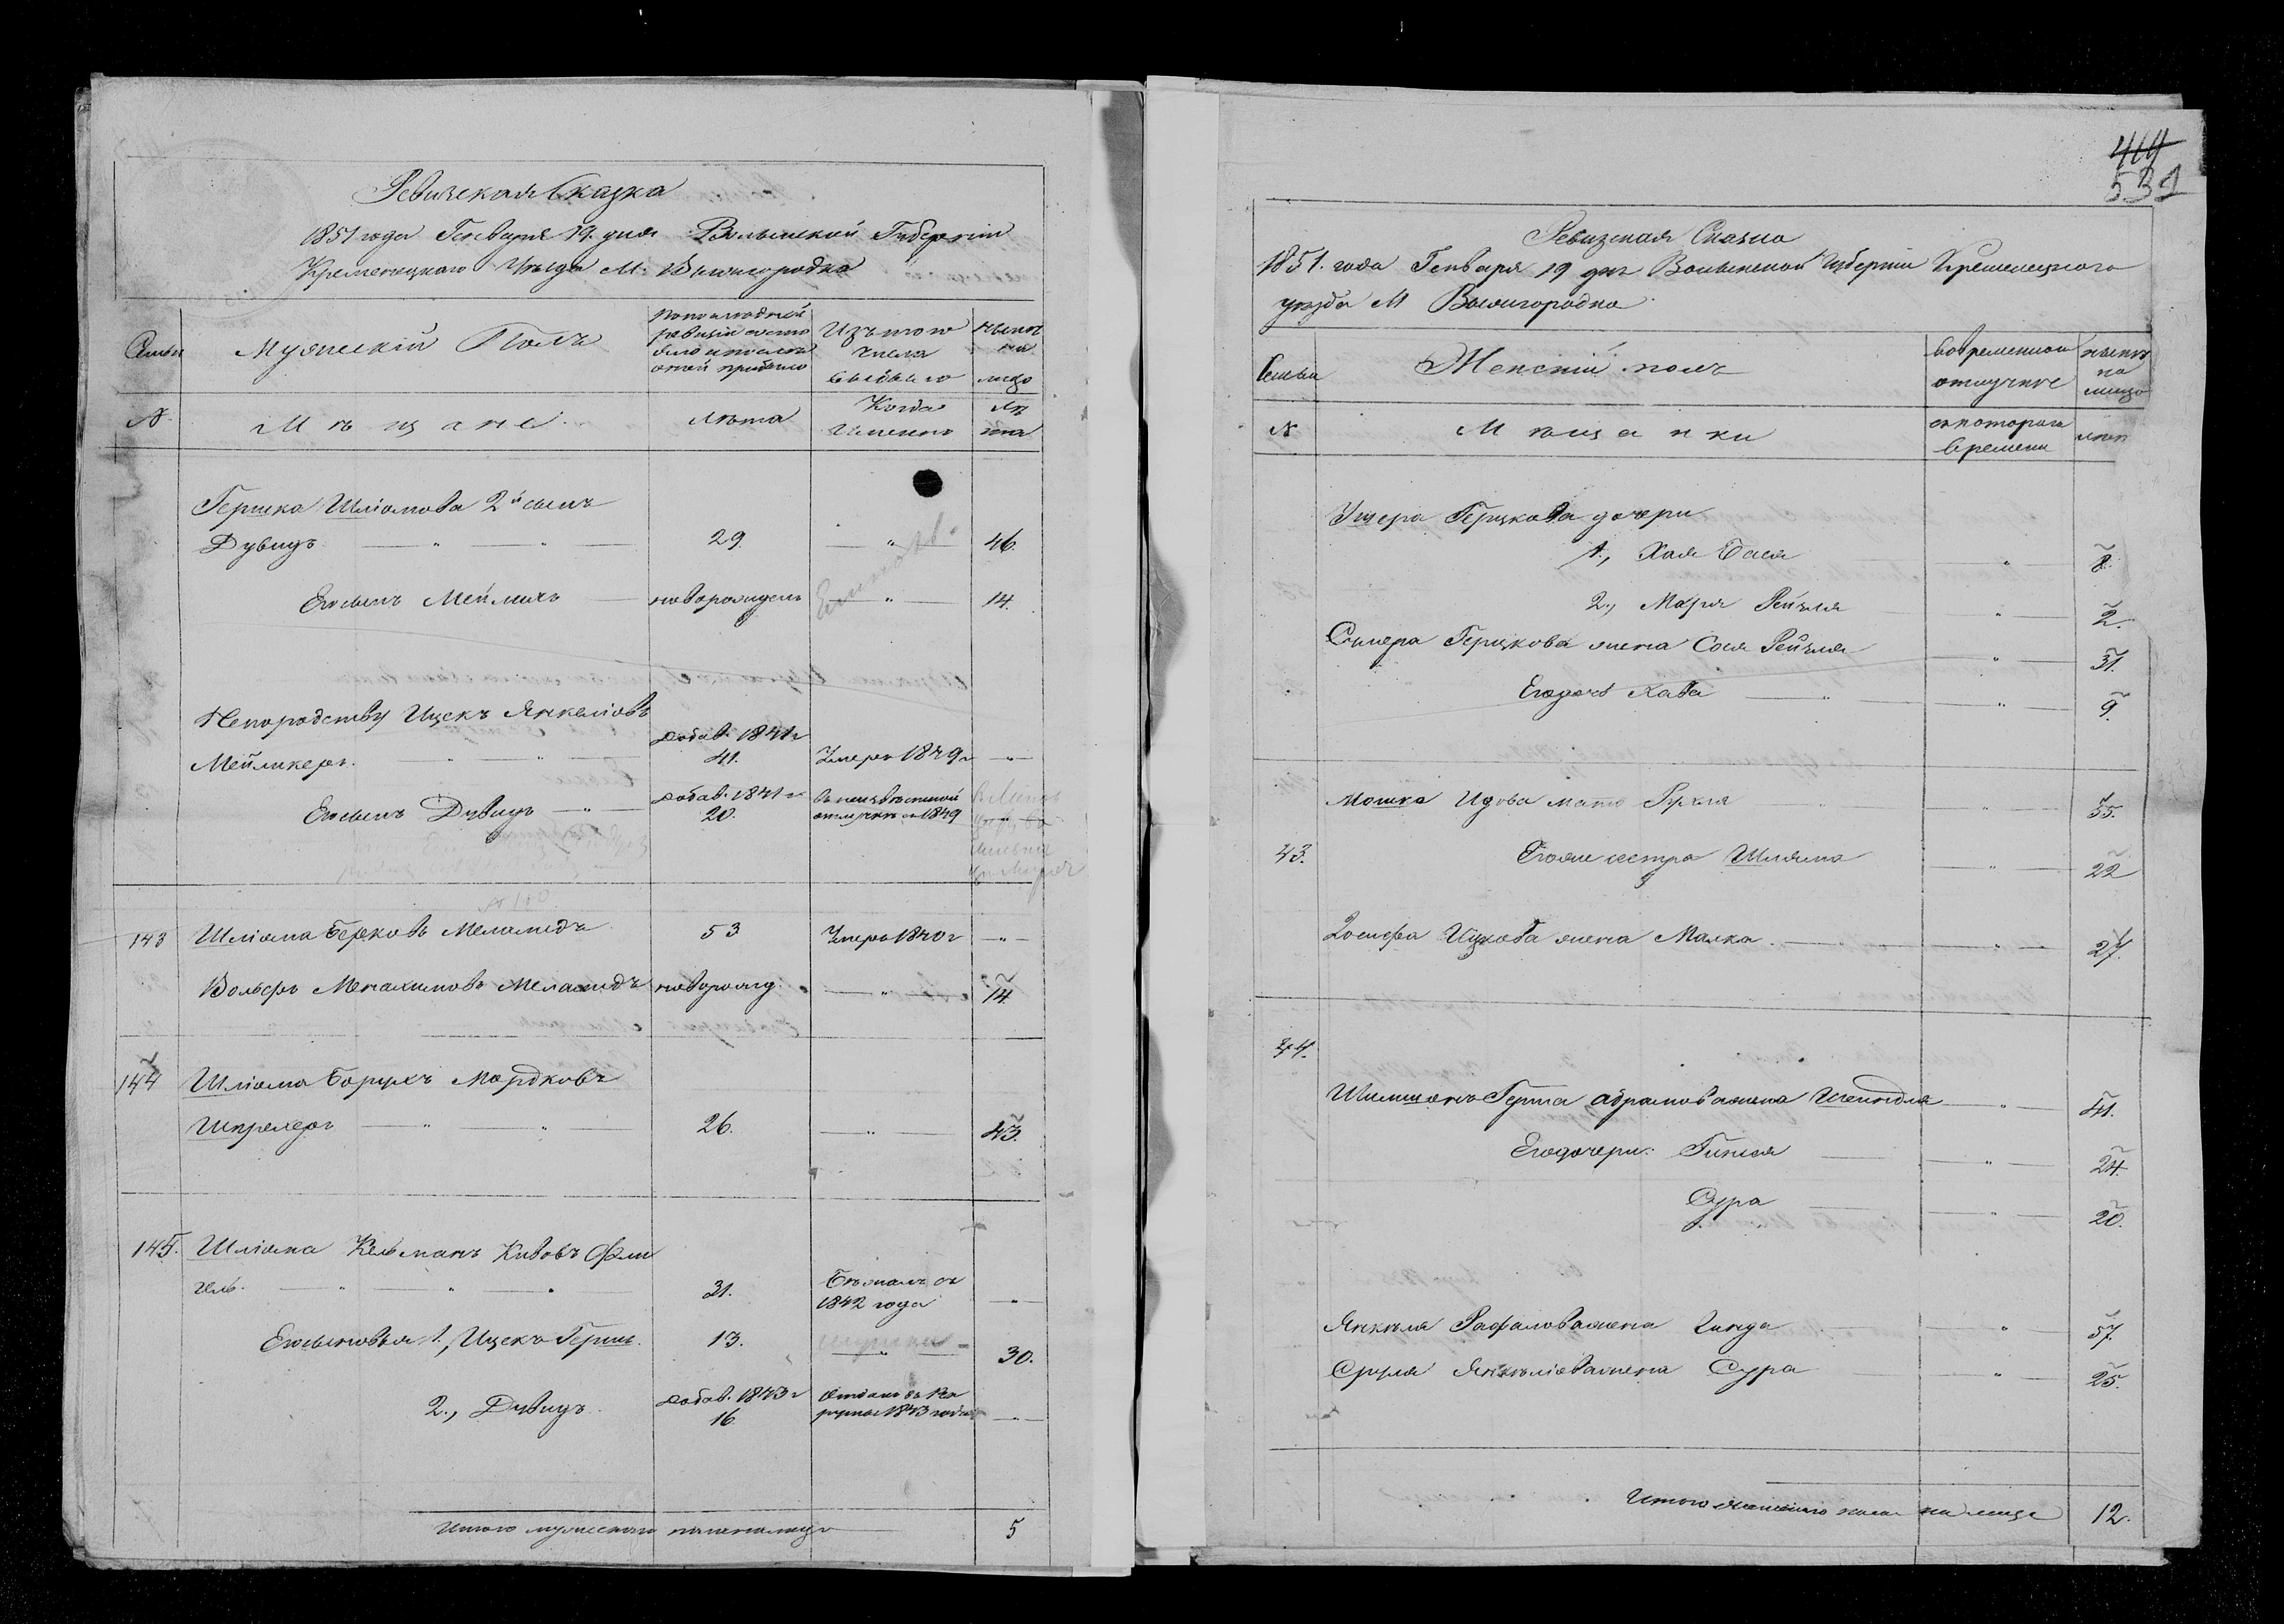 Ревизская Сказка
1851 года Генваря 19. дня Волынской Губернии
Кременецкаго Уезда М. Вышгородка
Семьи
Мужеский Полъ
По последней
ревизии состо
яло и после
оной прибыло
Изъ того
числа
выбыло
ныне
на
лицо
№
Мещане
Лета
Когда
именно
ле
та
Гершка Шліомова 2й сынъ
Дувидъ 29. " 46.
Егосынъ Мейлихъ новорожденъ " 14.
Ицекъ Янкеліовъ
Мейликеръ.
добав. 1841 г
41.
Умеръ 1849 г "
Егосынъ Дувидъ "
добав. 1841 г
20.
в неизвестной
отлучке с 1849
143 Шліома Берковъ Меламедъ 53 Умеръ 1840 г "
Вольфъ Менахимовъ Меламедъ новорожд. " 14
144 Шліома Борухъ Мордковъ
Шпрехеръ 26. " 43.
145. Шліома Кельманъ Кивовъ
31.
Бежалъ съ
1842 года "
Егосыновья 1, Ицекъ Гершъ. 13. " 30.
2., Дувидъ
добав. 1843 г
16.
Отданъ въ Рек
руты 1843 года "
Итого мужескаго пола налицо 5
414
531
Ревизская Сказка
1851. года Генваря 19 дня Волынской Губерніи Кременецкаго
уезда М Вышгородка
Семьи
Женскій полъ
Во временной
отлучке
ныне
на
лицо
№
Мещанки
съ котораго
времени
лета
Ушера Герцкова дочери
1., Хая Бася " 8.
2., Марія Рейзля " 2.
Герцкова жена Сося Рейзля " 31.
Егодочь Хава " 9.
Мошка Идова мать Рукля " 55.
43. Егоже сестра Шліома " 22
Иосифа Ицкова жена Малка. " 27.
44.
Шимшонъ Герша Абрамова жена Шейндля " 41.
Егодочери: Гитля " 24.
Сура " 20.
Янкеля Рафалова жена Линда " 57.
Сруля Янкеліова жена Сура " 25.
Итого женскаго пола на лицо 12.